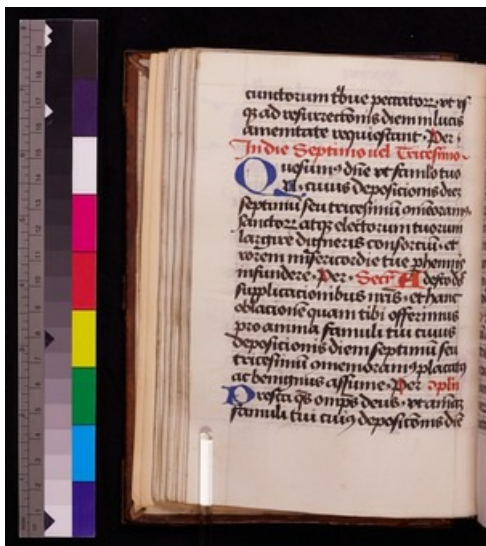 cunctorum tribue peccatorz. vt vsq
qz ad resurrectionis diem in lucis
amenitate requiescant. Per.
In die Septimo uel Tricesimo.
Quesumus dñe vt famulo tuo
N. cuius depositionis diem
septimū seu tricesimū cōmemoramꝰ
sanctorz atqz electorum tuorum
largire digneris consortiū. et
rorem misericordie tue phennē
infundere. Per. Secr̄. Adesto dñe
supplicacionibus nr̄is. et hanc
oblacionē quam tibi offerimus
pro anima famuli tui cuius
depositionis diem septimū seu
tricesimū cōmemoramꝰ placatꝰ
ac benignus assume. Per. 9plū
Presta qs omps deus. vt animā
famuli tui cuiꝰ deposicōnis diē